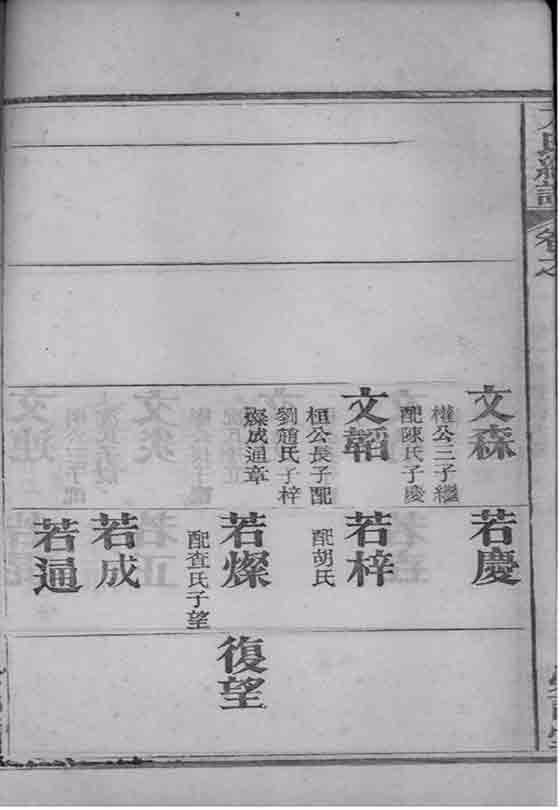 文森
權公三子繼
配陳氏子慶
文韜
桓公長子配
劉趙氏子梓
燦成通章
若慶
若梓
配胡氏
若燦
配查氏子望
若成
若通
復望